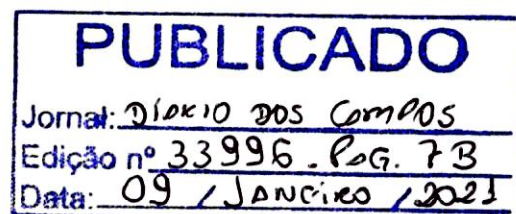 PUBLICADO
Jornal: DIÁRIO DOS CAMPOS
Edição nº 33996. PAG. 7B
Data: 09 / JANEIRO / 2021